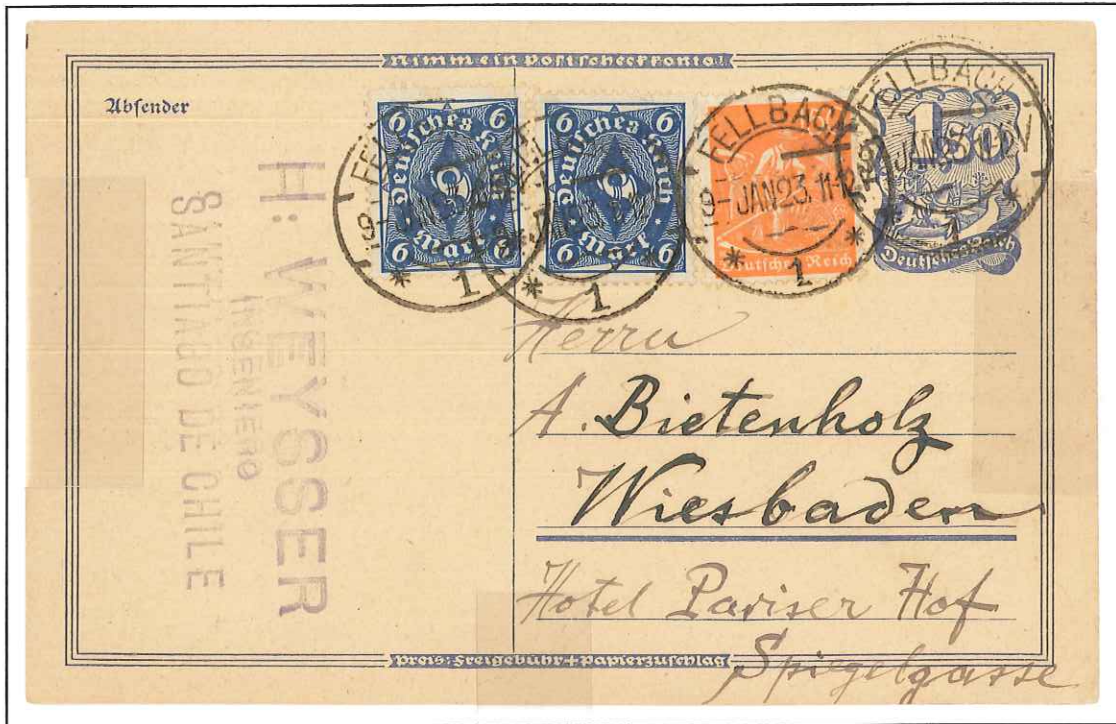 Nimm ein Postscheckkonto!
Absender
H. WEYSSER
INGENIERO
SANTIAGO DE CHILE
6 6
Deutsches Reich
6
Mark
6 6
6 6
Deutsches Reich
6
Mark
6 6
Deutsches Reich
150
Deutsches Reich
FELLBACH
1
FELLBACH
9-JAN23.11-12
1
FELLBACH
1
Herrn
A. Bietenholz
Wiesbaden
Hotel Pariser Hof
Spiegelgasse
Preis: Freigebühr + Papierzuschlag